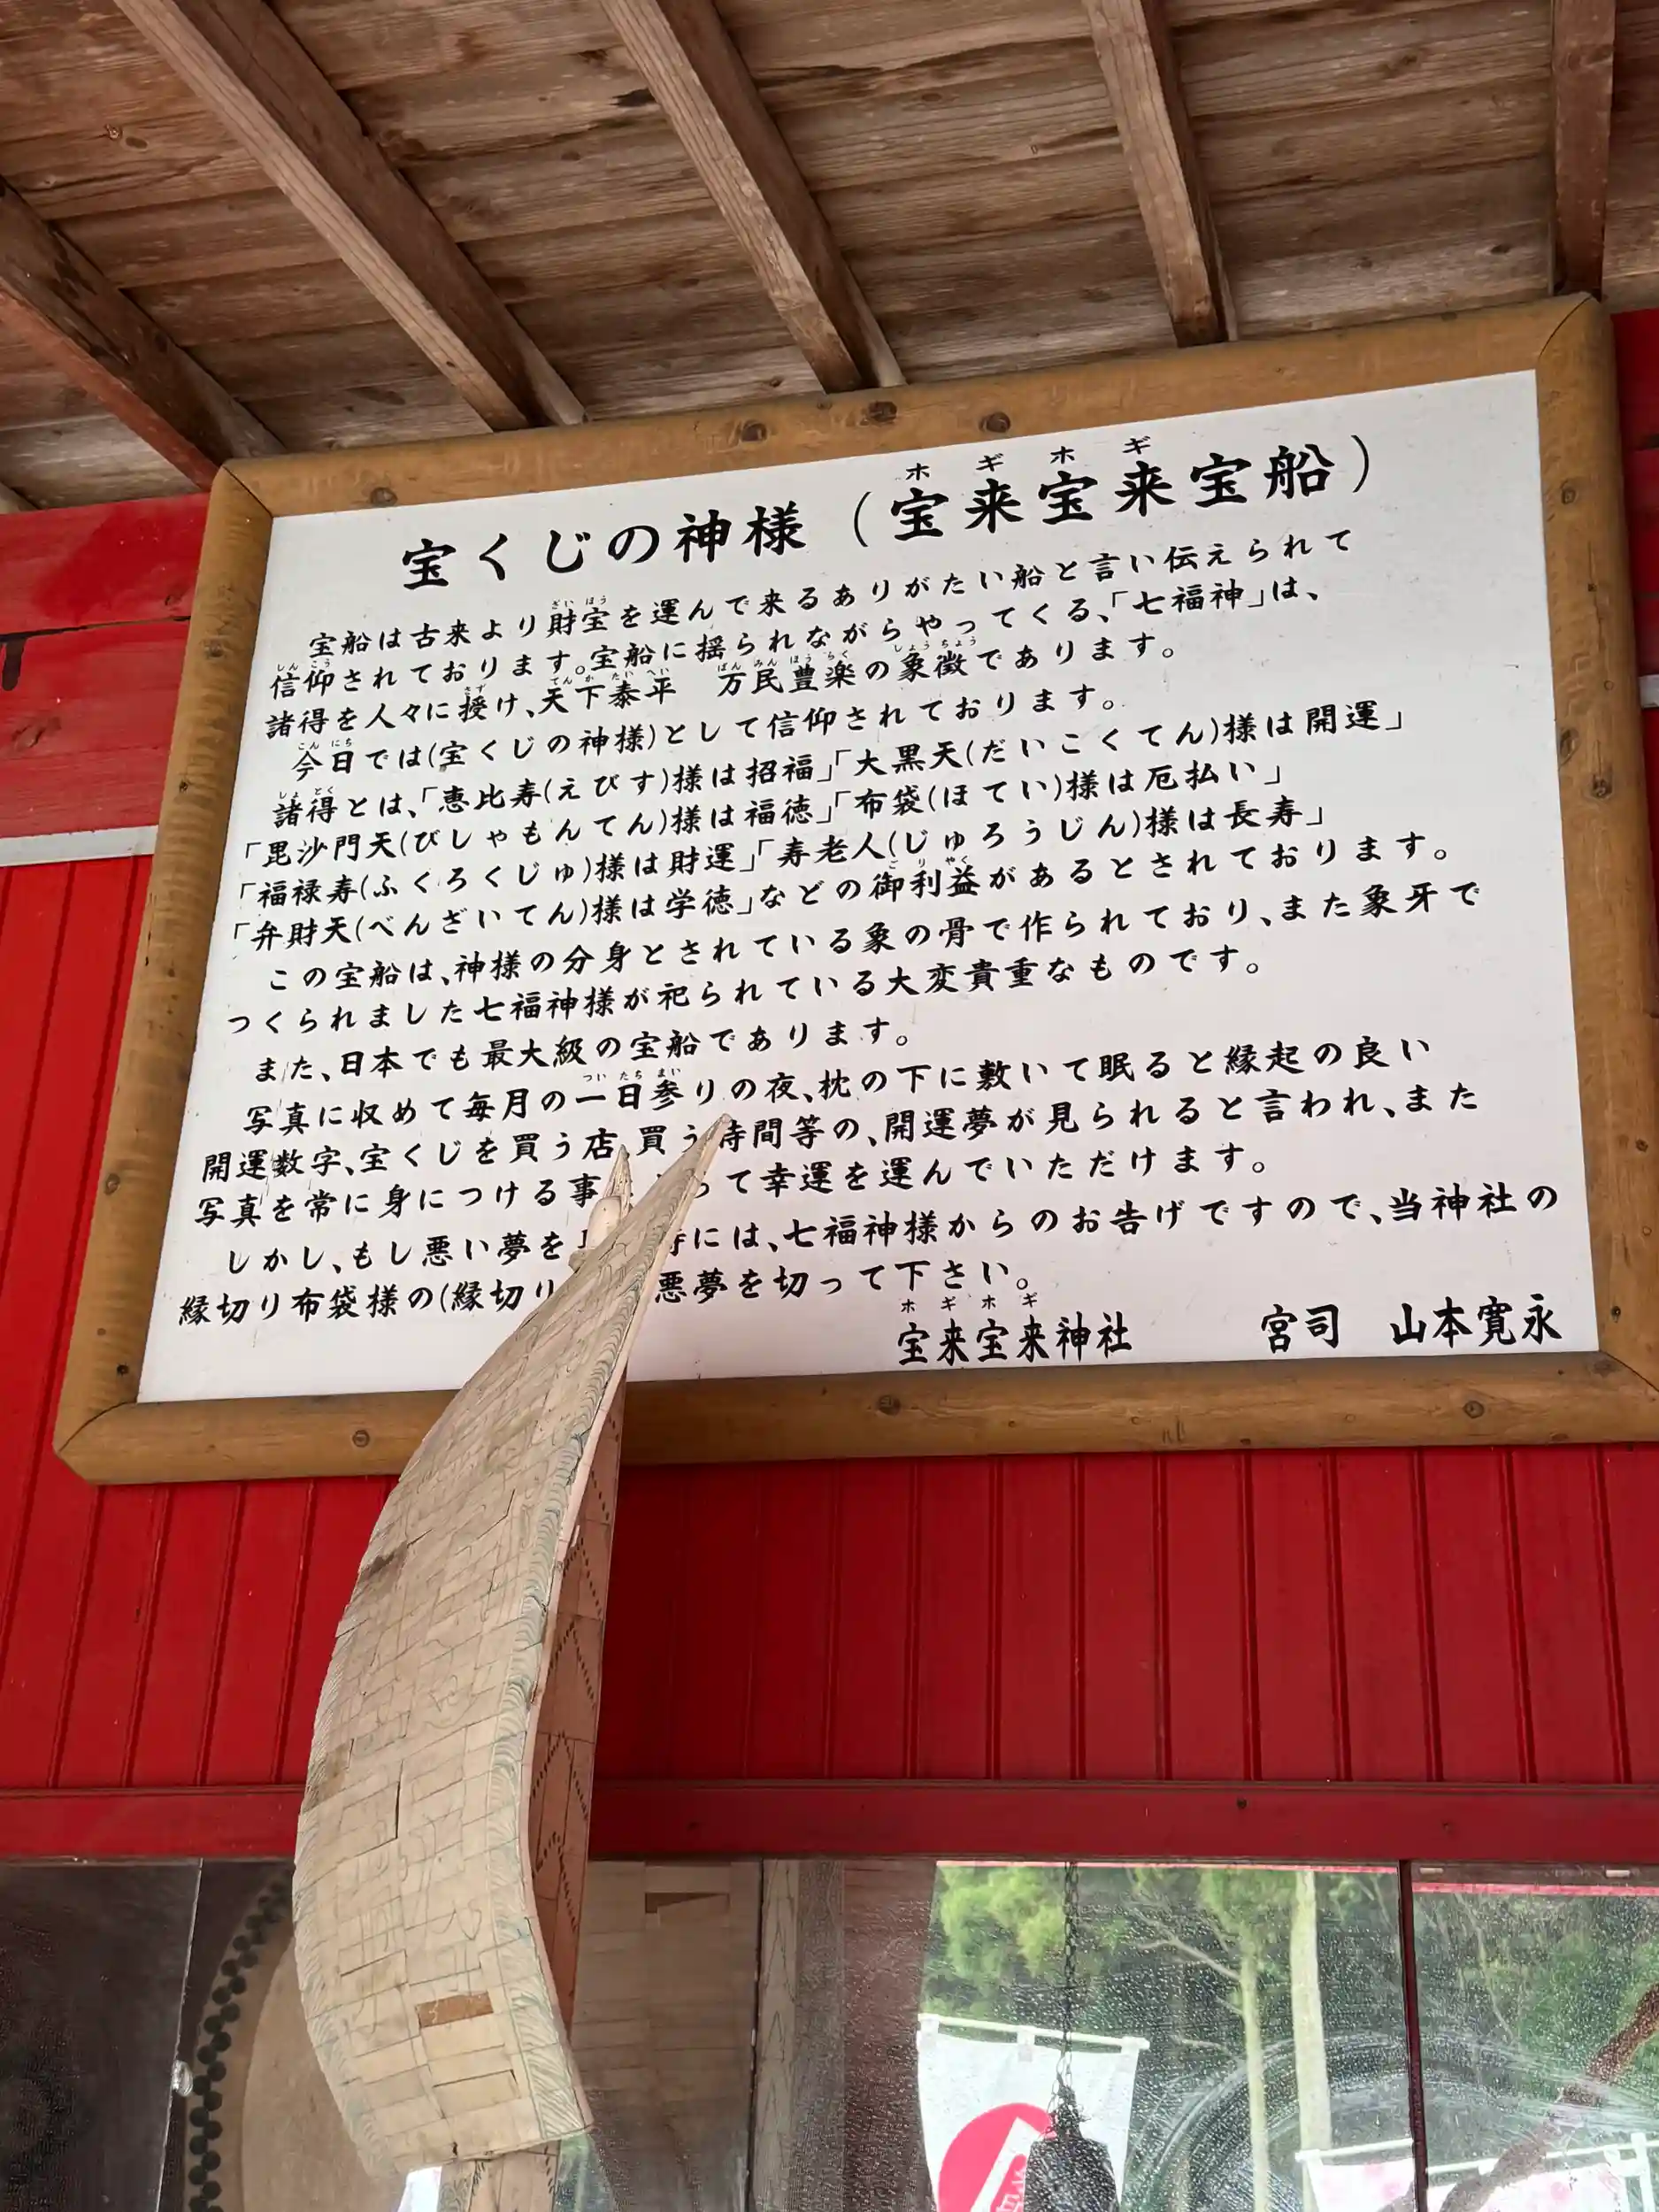 宝くじの神様（宝来宝来宝船）
ホギホギ
宝船は古来より財宝を運んで来るありがたい船と言い伝えられて
ざいほう
信仰されております。宝船に揺られながらやってくる、「七福神」は、
しんこう
諸得を人々に授け、天下泰平　万民豊楽の象徴であります。
さず　てんかたいへい　ばんみんほうらく　しょうちょう
今日では(宝くじの神様)として信仰されております。
こんにち
諸得とは、「恵比寿(えびす)様は招福」「大黒天(だいこくてん)様は開運」
しょとく
「毘沙門天(びしゃもんてん)様は福徳」「布袋(ほてい)様は厄払い」
「福禄寿(ふくろくじゅ)様は財運」「寿老人(じゅろうじん)様は長寿」
「弁財天(べんざいてん)様は学徳」などの御利益があるとされております。
ごりやく
この宝船は、神様の分身とされている象の骨で作られており、また象牙で
つくられました七福神様が祀られている大変貴重なものです。
また、日本でも最大級の宝船であります。
写真に収めて毎月の一日参りの夜、枕の下に敷いて眠ると縁起の良い
ついたちまい
開運数字、宝くじを買う店、買う時間等の、開運夢が見られると言われ、また
写真を常に身につける事 って幸運を運んでいただけます。
しかし、もし悪い夢を 時には、七福神様からのお告げですので、当神社の
縁切り布袋様の(縁切り 悪夢を切って下さい。
宝来宝来神社　宮司　山本寛永
ホギホギ